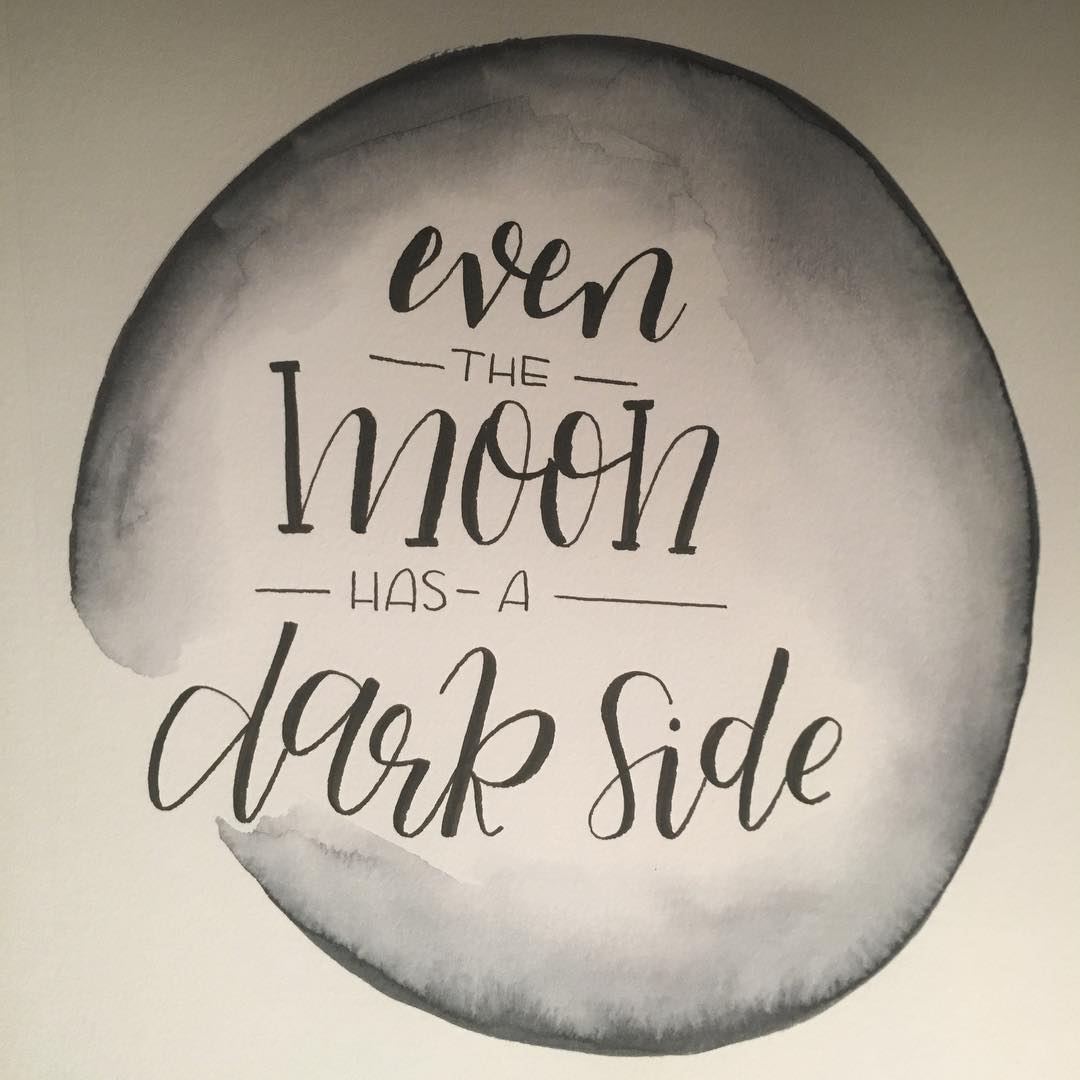 even
— THE —
moon
— HAS - A —
dark side